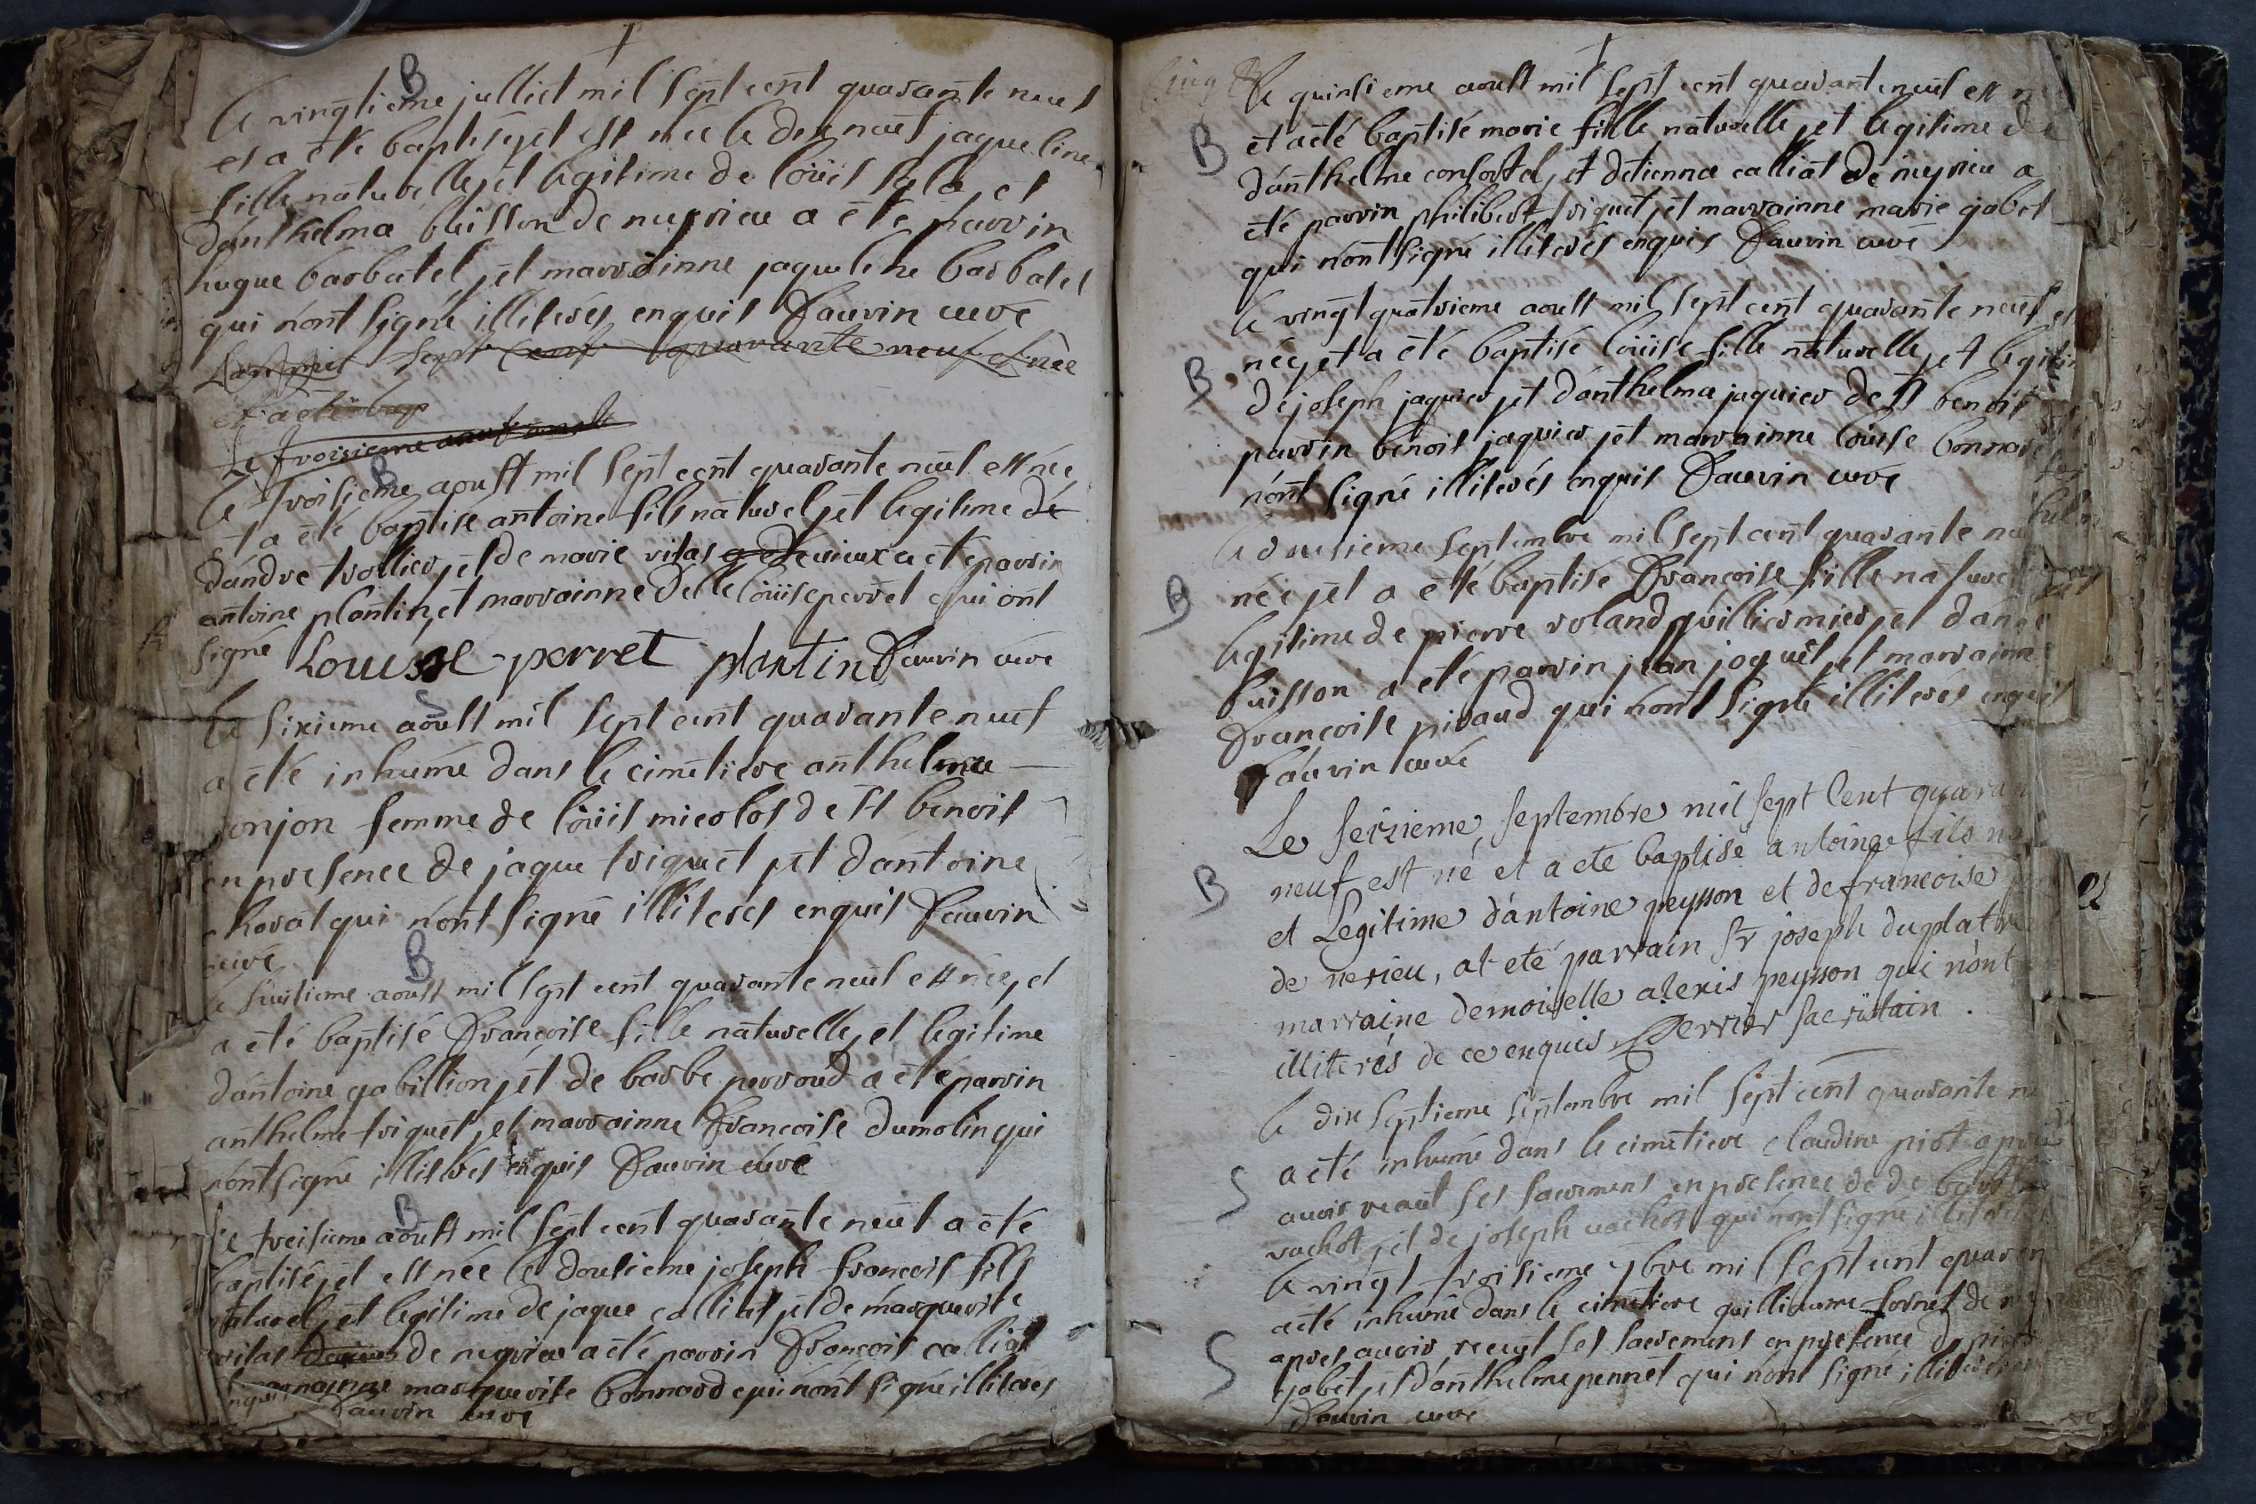 B
le vingtieme julliet mil sept cent quarante neuf
et a été baptiséé et est née le dix neuf jaqueline
fille naturelle, et legitime de loüis sola, et
d'anthelma buisson de neyrieu a été parrin
hugue barbatel, et marrainne jaqueline barbatel
qui nont signé illiterés enquis Fauvin curé
Lan mil sept cent quarante neuf est née
et a été bap
Le troisieme aoust
B
le troisieme aoust mil sept cent quarante neuf est née
et a été baptisé antoine fils naturel, et legitime de
d'andre trollier, et de marie vitas a été parrin
antoine plantin, et marrainne Delle loüise perret qui ont
signé Louise perret plantin Fauvin curé
S
le sixieme aoust mil sept cent quarante neuf
a été inhumé dans le cimetiere anthelma
onjon femme de loüis micolos de st benoit
en presence de jaque triquet, et d'antoine
chorat qui n'ont signé illiterés enquis Fauvin
curé
B
le huitieme aoust mil sept cent quarante neuf est née, et
a été baptisé Françoise fille naturelle, et legitime
d'antoine gabillion, et de barbe perroud a été parrin
anthelme triquet, et marrainne Françoise dumolin qui
n'ont signé illiterés enquis Fauvin curé
B
le treisieme aoust mil sept cent quarante neuf a été
baptisé, et est née le dousieme joseph françois fils
naturel, et legitime de jaque calliat, et de marguerite
vitas de neyrieu a été parrin François calliat
marrainne marguerite bonnard qui n'ont signé illiteres
enquis Fauvin curé
le quinsieme aoust mil sept cent quarante neuf est né
B et a été baptisé marie fille naturelle, et legitime de
d'anthelme consortel, et d'etienna calliat de neyrieu a
été parrin philibert triquet, et marrainne marie gobet
qui n'ont signé illiterés enquis Fauvin curé
le vingt quatrieme aoust mil sept cent quarante neuf es
B née, et a été baptisé loüise fille naturelle, et legiti
de joseph jaquier, et d'anthelma jaquier de st benoit
parrin benoit jaquier, et marrainne loüise bonnard
n'ont signé illiterés enquis Fauvin curé
le deusieme septembre mil sept cent quarante neu
B née, et a été baptisé Françoise fille nature
legitime de pierre roland guilliermier, et dan
buisson a été parrin jean joquet, et marrainne
Françoise piraud qui n'ont signé illiterés enquis
Fauvin curé
Le seizieme septembre mil sept cent quaran
B neuf est né et a eté baptisé antoine fils n
et Legitime d'antoine peysson et de françoise
de nerieu, at eté parrain sr joseph duplatre
marraine demoiselle alexis peysson qui n'ont
illiterés de ce enquis Perrier sacristain.
le dix septieme septembre mil sept cent quarante ne
S a été inhumé dans le cimetiere claudine piot apres
avoir receut ses sacremens en presence de de
vachot, et de joseph vachot qui n'ont signé illiterés
le vingt troisieme 7bre mil sept cent quaran
a été inhumé dans le cimetiere guillieaume fornet de
S apres avoir receut ses sacremens en presence de pierre
gobet, et d'anthelme pennet qui n'ont signé illiterés
Fauvin curé